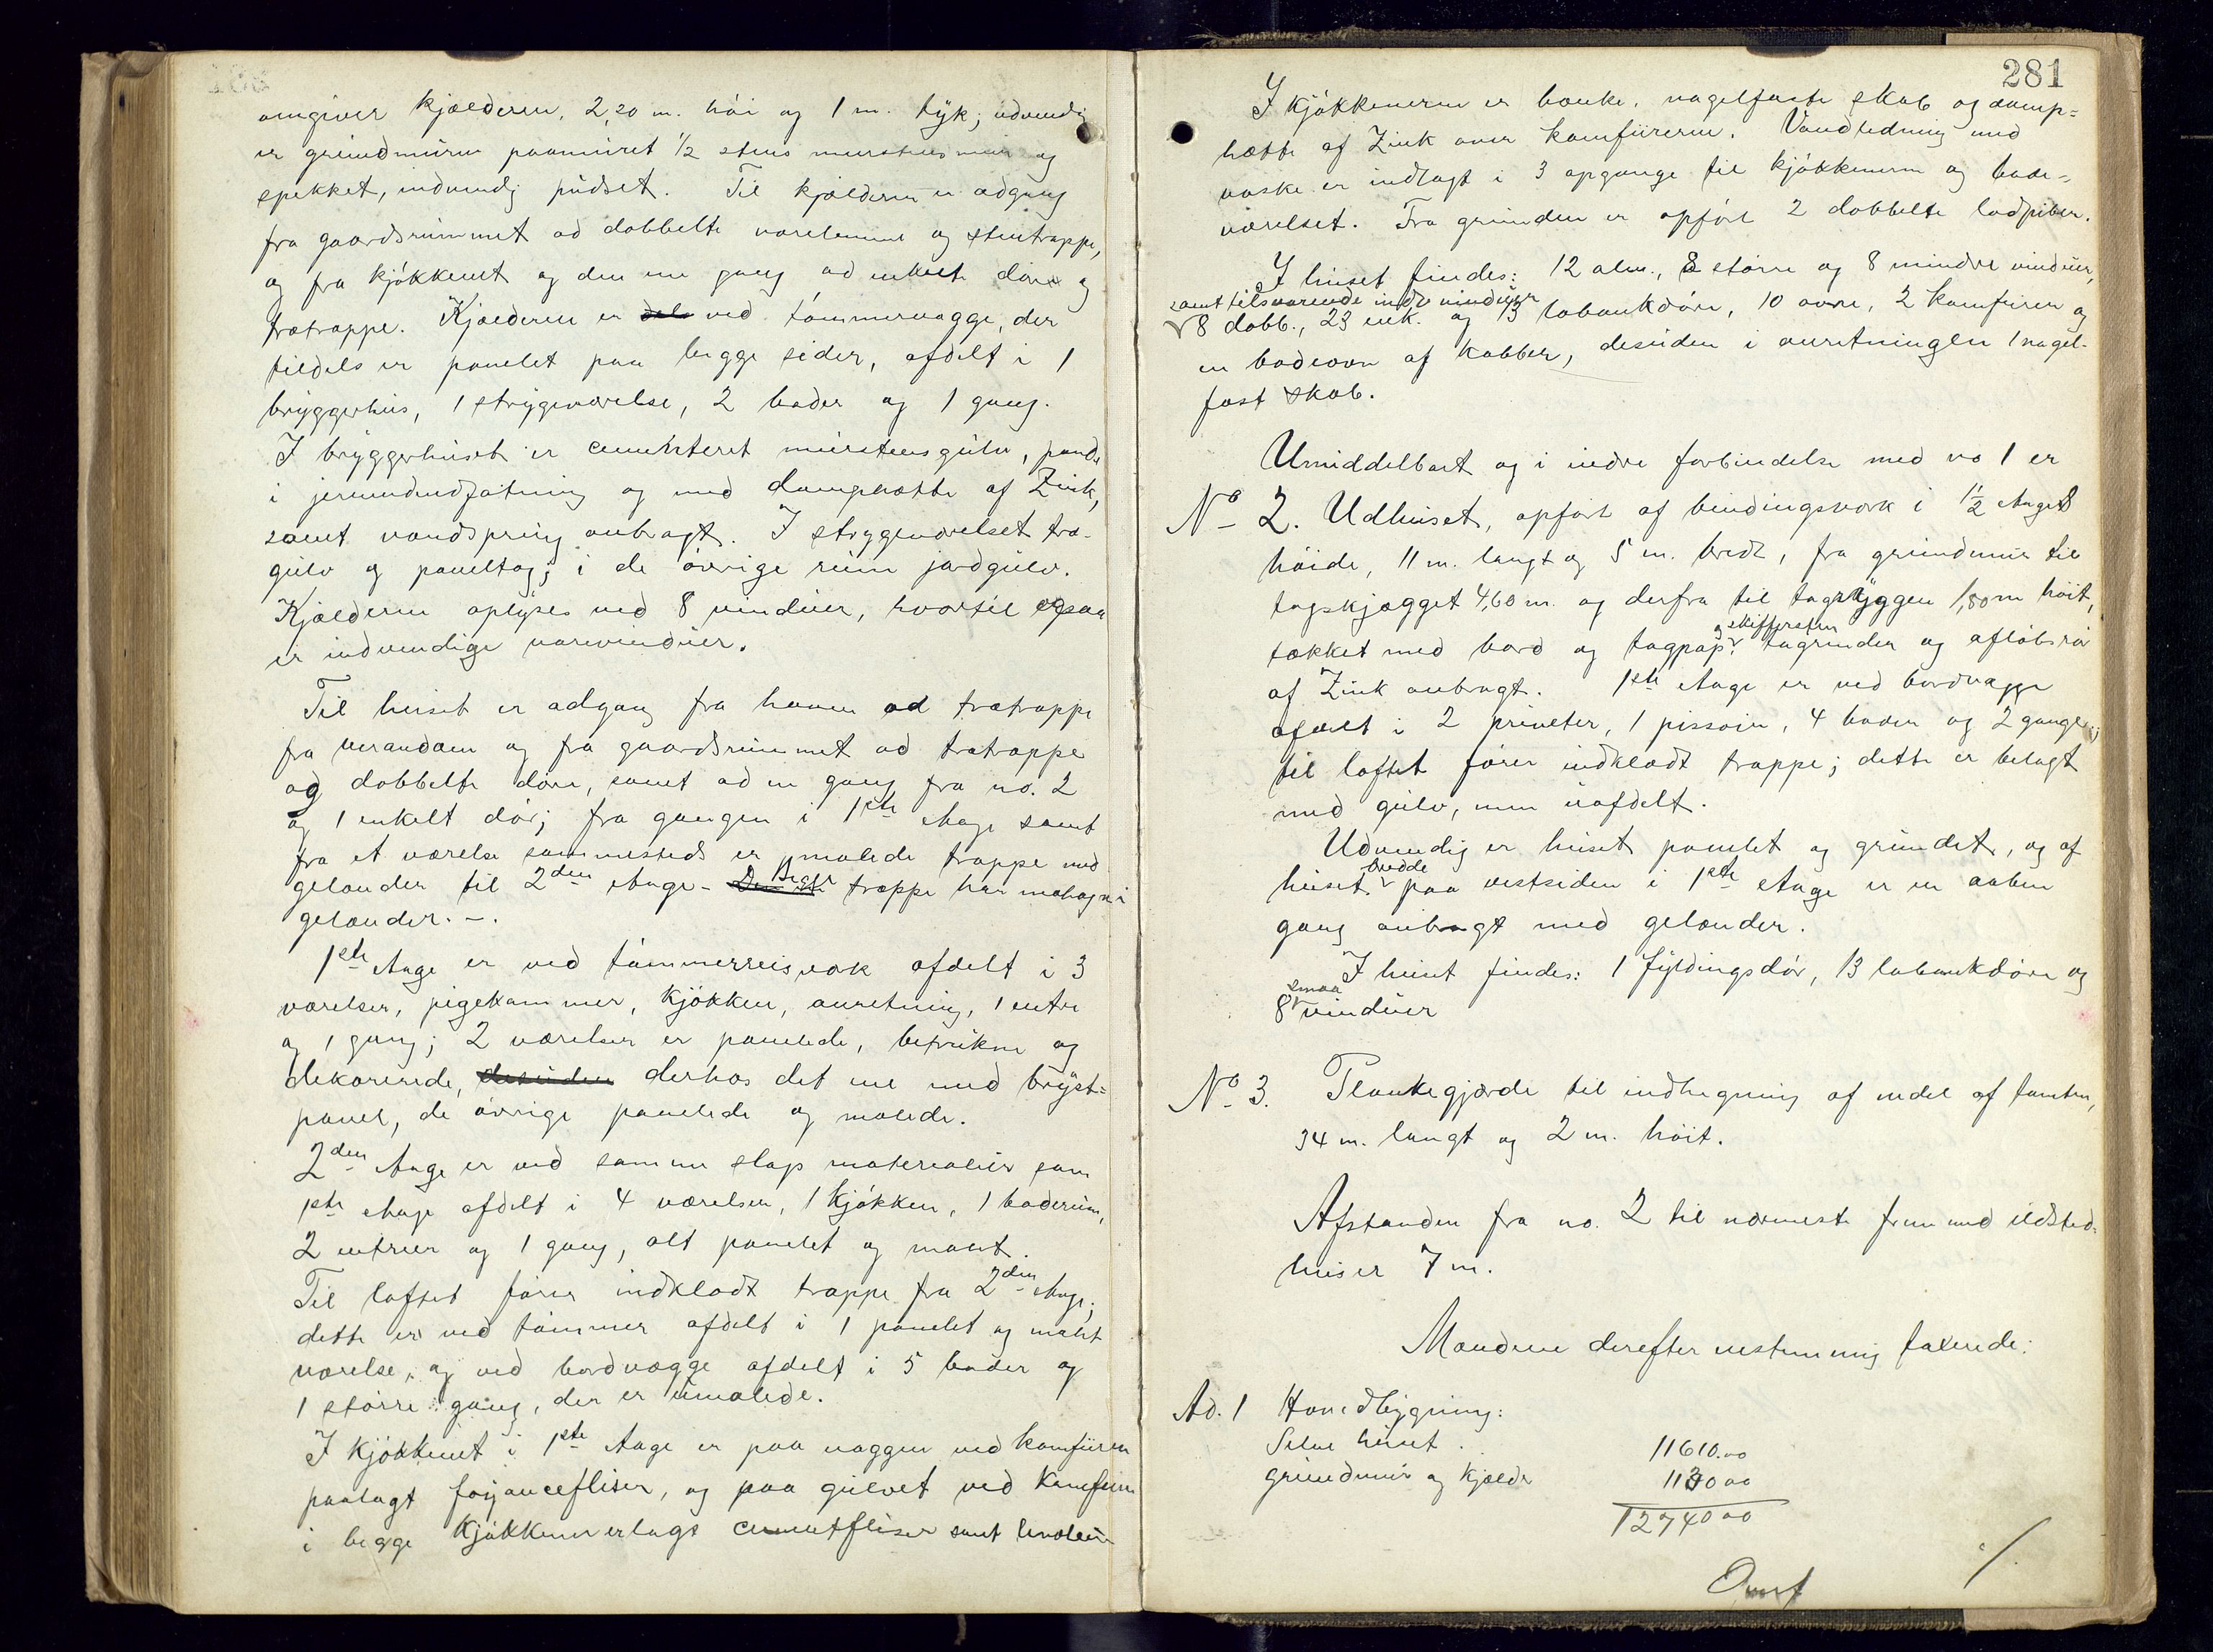 omgiver kjælderen, 2,20 m. høi og 1 m. tyk; udvendig
er grundmuren paamuret ½ stens murstensmur og
spekket, indvendig pudset. Til kjælderen er adgang
fra gaardsrummet ad dobbelte varelemme og stentrappe,
og fra kjøkkenet og den ene gang ad enkelt døre og
trætrappe. Kjælderen er ved tømmervægge, der
tildels er panelet paa begge sider, afdelt i 1
bryggerhus, 1 strygeværelse, 2 boder og 1 gang.
I bryggerhuset er cementeret murstensgulv, pande
i jernindfatning og med damphætte af Zink,
samt vandspring anbragt. I strygeværelset træ-
gulv og paneltag; i de øvrige rum jordgulv.
Kjælderen oplyses ved 8 vinduer, hvortil ogsaa
er indvendige varevinduer.
Til huset er adgang fra haven ad trætrappe
fra verandaen og fra gaardsrummet ad trætrappe
og dobbelte døre, samt ad en gang fra no. 2
og 1 enkelt dør; fra gangen i 1ste etage samt
fra et værelse sammesteds er malede trappe med
gelænder til 2den etage - Begge trappe har mahogni
gelænder. -.
1ste etage er ved tømmerreisværk afdelt i 3
værelser, pigekammer, kjøkken, anretning, 1 entre
og 1 gang; 2 værelser er panelede, betrukne og
dekorerede, desuden derhos det ene med bryst-
panel, de øvrige panelede og malede.
2den etage er ved samme slags materialier som
1ste etage afdelt i 4 værelser, 1 kjøkken, 1 baderum,
2 entreer og 1 gang, alt panelet og malet.
Til loftet fører indklædt trappe fra 2den etage;
dette er ved tømmer afdelt i 1 panelet og malet
værelse, og ved bordvægge afdelt i 5 boder og
1 større gang, der er umalede.
I kjøkkenet i 1ste etage er paa væggen ved komfuren
paalagt fajancefliser, og paa gulvet ved komfuren
i begge kjøkkener lagt cementfliser samt linoleum
281
I kjøkkenerne er bænke, nagelfaste skab og damp-
hætte af Zink over komfurerne. Vandledning med
vaske er indlagt i 3 opgange til kjøkkenerne og bade-
værelset. Fra grunden er opført 2 dobbelte lodpiber.
I huset findes: 12 alm., 2 større og 8 mindre vinduer,
samt tilsvarende indre vinduer
8 dobb., 23 enk. og 13 labankdøre, 10 ovne, 2 komfurer og
en badeovn af kobber, desuden i anretningen 1 nagel-
fast skab.
Umiddelbart og i indre forbindelse med no 1 er
No 2. Udhuset, opført af bindingsværk i 1½ etages
høide, 11 m. langt og 5 m. bredt, fra grundmur til
tagskjægget 4,60 m. og derfra til tagryggen 1,80 m høit,
og skiffersten
tækket med bord og tagpap. tagrender og afløbsrør
af Zink anbragt. 1ste etage er ved bordvægge
afdelt i 2 priveter, 1 pissoir, 4 boder og 2 gange;
til loftet fører indklædt trappe; dette er belagt
med gulv, men uafdelt.
Udvendig er huset panelet og grundet, og af
bredde
huset paa vestsiden i 1ste etage er en aaben
gang anbragt med gelænder.
I huset findes: 1 fyldingsdør, 13 labankdøre og
smaa
8 vinduer
No 3. Plankegjærde til indhegning af endel af tomten,
34 m. langt og 2 m. høit.
Afstanden fra no. 2 til nærmeste fremmed ildsted-
hus er 7 m.
Mændene derefter nestemmig taxerede:
Ad. 1 Hovedbygning:
Selve huset 11610.00
grundmur og kjælder 1130 00
12740 00
./.